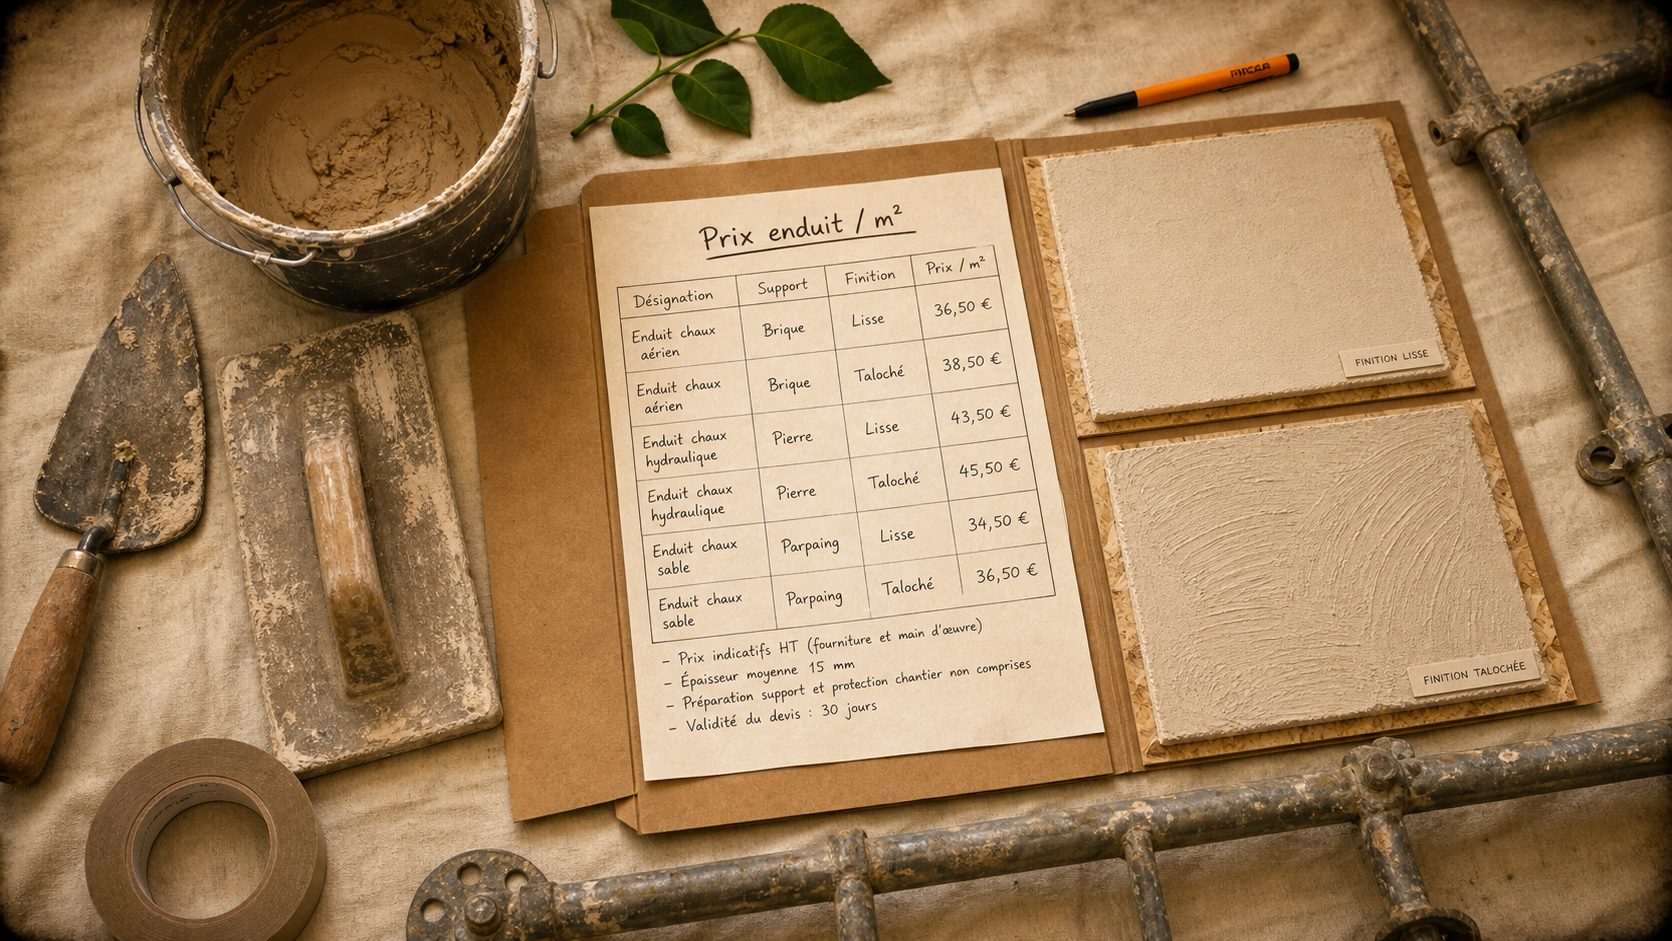 Prix enduit / m²
Désignation Support Finition Prix / m²
Enduit chaux aérien Brique Lisse 36,50 €
Enduit chaux aérien Brique Taloché 38,50 €
Enduit chaux hydraulique Pierre Lisse 43,50 €
Enduit chaux hydraulique Pierre Taloché 45,50 €
Enduit chaux sable Parpaing Lisse 34,50 €
Enduit chaux sable Parpaing Taloché 36,50 €
– Prix indicatifs HT (fourniture et main d'œuvre)
– Épaisseur moyenne 15 mm
– Préparation support et protection chantier non comprises
– Validité du devis : 30 jours
FINITION LISSE
FINITION TALOCHÉE